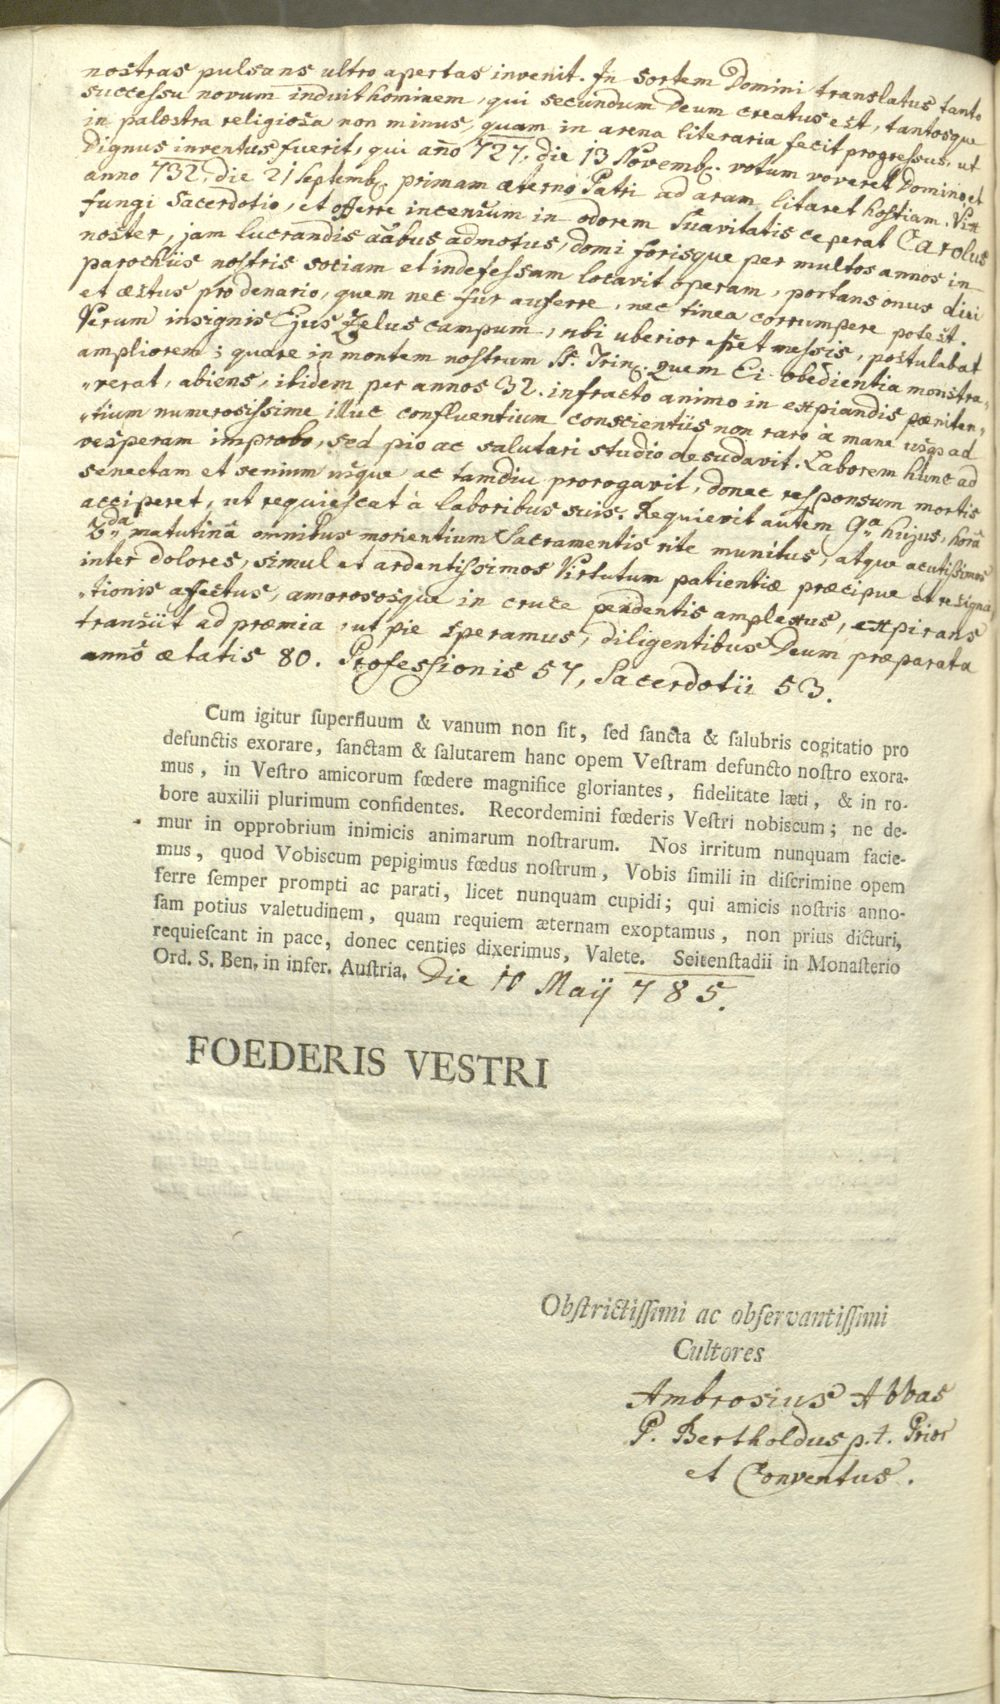 nostras pulsans ultro apertas invenit. In sortem Domini translatus tanto
successu novum induit hominem, qui secundum Deum creatus est, tantosque
in palæstra religiosa non minus, quam in arena literaria fecit progressus, ut
dignus inventus fuerit, qui año 727, die 13 Novemb. votum voveret Domino, et
anno 732, die 21 Septemb. primam æterno Patri ad aram litaret hostiam. Vix
fungi Sacerdotio, et offerre incensum in odorem suavitatis ceperat Carolus
noster, jam lucrandis aã̃bus admotus, domi forisque per multos annos in
parochiis nostris sociam et indefessam locavit operam, portans onus diei
et æstus pro denario, quem nec fur auferre, nec tinea corrumpere potest.
Verum insignis Ejus Zelus campum, ubi uberior esset messis, postulabat
ampliorem; quare in montem nostrum SS. Trin. quem Ei obedientia monstra-
verat, abiens, ibidem per annos 32. infracto animo in expiandis pæniten-
tium numerosissime illuc confluentium conscientiis non raro à mane usq ad
vesperam improbo, sed pio ac salutari studio desudavit. Laborem hunc ad
senectam et senium usque ac tamdiu prorogavit, donec responsum mortis
acciperet, ut requiescat à laboribus suis. Requievit autem 9.a hujus, horâ
2.da matutinâ omnibus morientium Sacramentis rite munitus, atque acutissimos
inter dolores, simul et ardentissimos Virtutum patientiæ præcipue et resigna-
tionis affectus, amorososque in cruce pendentis amplexus, expirans
transiit ad præmia, ut pie speramus, diligentibus Deum præparata
anno ætatis 80. Professionis 57, Sacerdotii 53.
Cum igitur ſuperfluum & vanum non ſit, ſed ſancta & ſalubris cogitatio pro
defunctis exorare, ſanctam & ſalutarem hanc opem Veſtram defuncto noſtro exora-
mus, in Veſtro amicorum fœdere magnifice gloriantes, fidelitate læti, & in ro-
bore auxilii plurimum confidentes. Recordemini fœderis Veſtri nobiscum; ne de-
mur in opprobrium inimicis animarum noſtrarum. Nos irritum nunquam facie-
mus, quod Vobiscum pepigimus fœdus noſtrum, Vobis ſimili in diſcrimine opem
ferre ſemper prompti ac parati, licet nunquam cupidi; qui amicis noſtris anno-
ſam potius valetudinem, quam requiem æternam exoptamus, non prius dicturi,
requieſcant in pace, donec centies dixerimus, Valete. Seitenſtadii in Monaſterio
Ord. S. Ben. in infer. Auſtria. Die 10 Maij 785.
FOEDERIS VESTRI
Obſtrictiſſimi ac obſervantiſſimi
Cultores
Ambrosius Abbas
P. Bertholdus p.t. Prior
et Conventus.